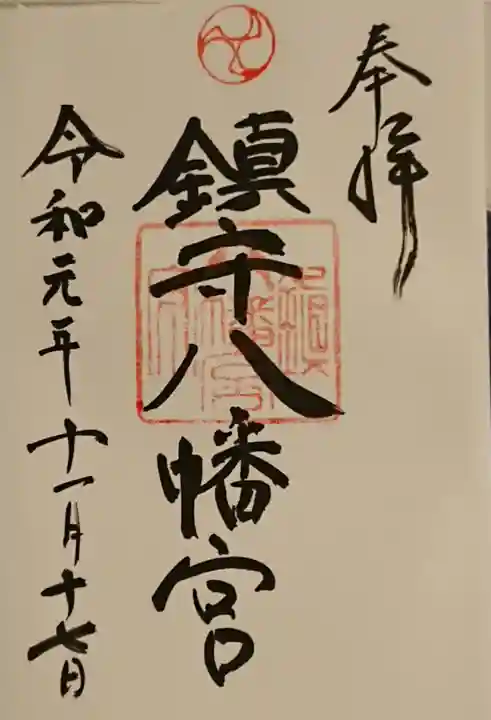 奉拝
鎮守八幡宮
令和元年十一月十七日